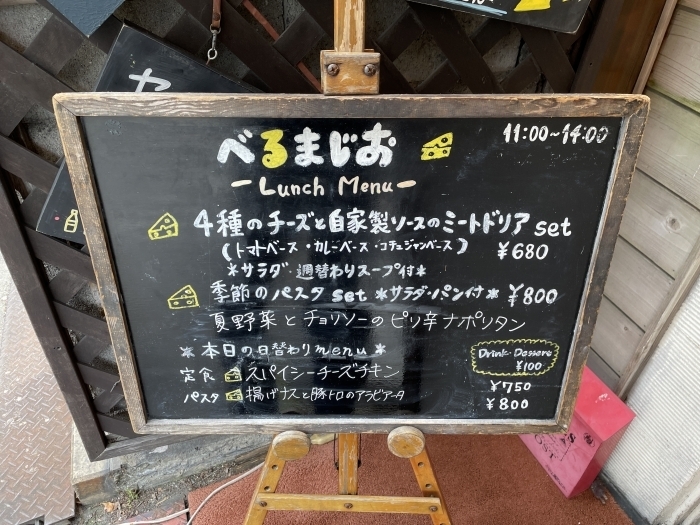 べるまじお
11:00~14:00
ーLunch Menuー
4種のチーズと自家製ソースのミートドリア set
(トマトベース・カレーベース・コチュジャンベース) ¥680
*サラダ・週替わりスープ付*
季節のパスタ set *サラダ・パン付* ¥800
夏野菜とチョリソーのピリ辛ナポリタン
*本日の日替わりmenu*
Drink・Dessert
¥100
定食 スパイシーチーズチキン ¥750
パスタ 揚げナスと豚トロのアラビアータ ¥800